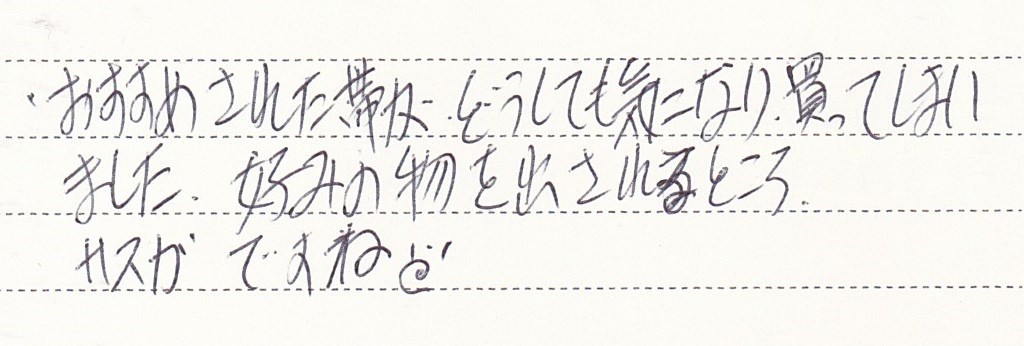 ・おすすめされた帯が、どうしても気になり、買ってしまい
ました。好みの物を出されるところ、
サスガですね